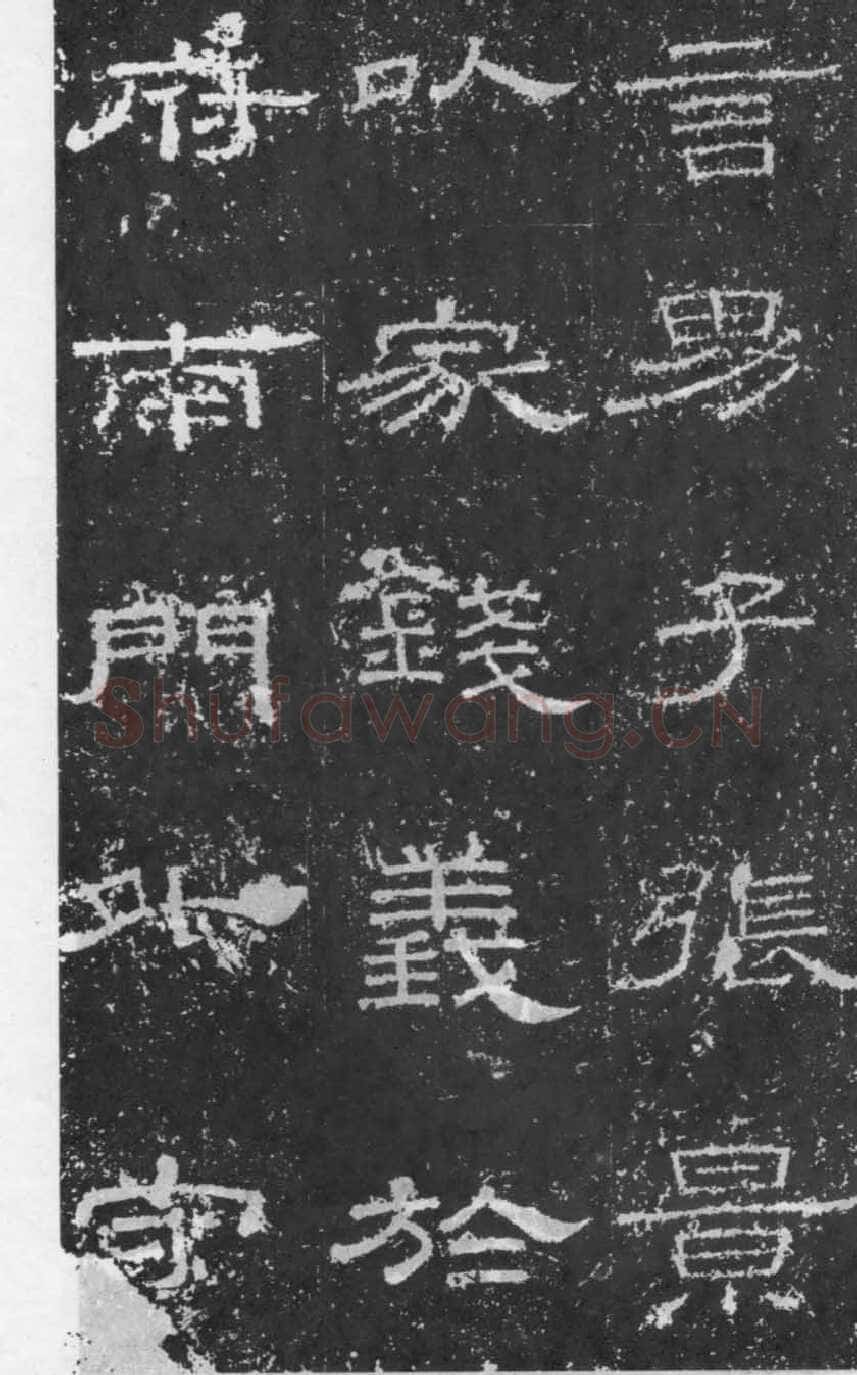 言男子張景
以家錢義於
府南門外守
Shufawang.CN